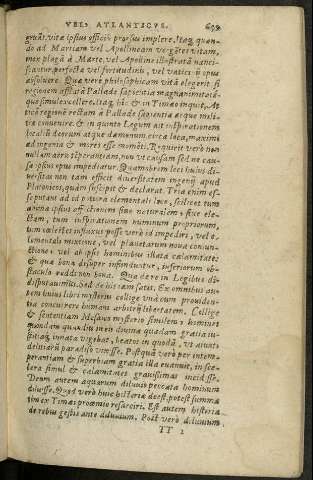 VEL, ATLANTICVS. 699
gruāt vita ipsius officiū prorsus implere. Itaq; quan-
do ad Martiam vel Apollineam vergāt eius vitam,
mox plagā à Marte, vel Apolline illustratā nanci-
scantur, perfectæ vel fortitudinis, vel vaticinii opus
absoluere. Quę verò philosophicam vitā elegerit si
regionem afflatā Pallade sapientia magnanimitatéq;
que simul excellere. Itaq; hic & in Timæo inquit, At-
ticā regionem rectam à Pallade sapientiæ atque mili-
tiæ conuenire, & in quinto Legum ait inspirationem
localē deorum atque dæmonum, circa loca, maximi
ad ingenia & mores esse momēti. Requirit verò non
nullam aëris tēperantiam,
causa ipsius opus impediatur. Quamobrem loci huius di-
uersitas non tam efficit diuersitatem ingenij apud
Platonicos, quàm suscipit & declarat. Tria enim ef-
se putant ad id præter elementalē locū, scilicet tum
animæ ipsius affectionem siue naturalem, siue ele-
ctam, tum inspirationem numinum propriorum,
tum cælestes influxus posse verò id impediri, vel e-
lementali mixtione, vel planetarum noua coniun-
ctione, vel ab ipsis hominibus illata calamitate:
& quæ bona desuper infunduntur, inferiorum ob-
stacula reddi non bona. Qua de re in Legibus di-
disputauimus. Sed de his iam satis. Ex omnibus au-
tem huius libri mysteriis collige vnà cum prouiden-
tia concurrere humani arbitrij libertatem. Collige
& sententiam Mosaico mysterio similem: homines
quondam quandiu in eis diuina quædam gratia in-
sitaq; innata vigebat, beatos in quodā, vt aiunt
deliciarū paradiso vixisse. Postquā verò per intem-
perantiam & superbiam gratia illa euanuit, in sce-
lera simul & calamitates grauissimas incidisse.
Deum autem aquarum diluuio peccata hominum
diluisse. Quod verò huic historiæ deest, potest summa-
tim ex Timæi proœmio resarciri. Est autem historia
de rebus gestis ante diluuium. Post verò diluuium
TT 2